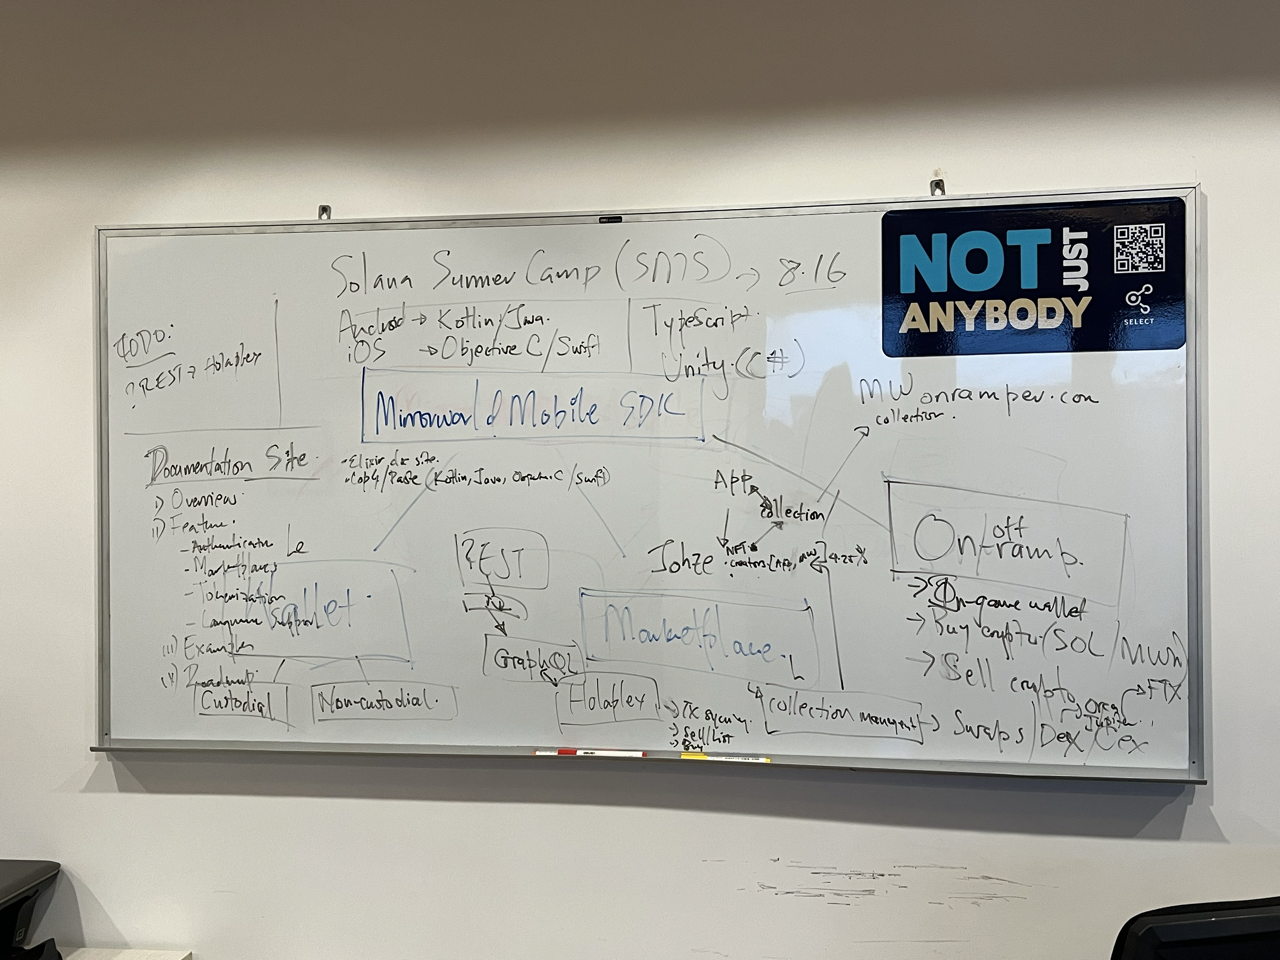 Solana Summer Camp (SMS) → 8.16
NOT JUST
ANYBODY
SELECT
Android → Kotlin/Java.
iOS → Objective C/Swift
TypeScript.
Unity. (C#)
TODO:
REST → Holaplex
Mirrorworld Mobile SDK
- Copy/Paste (Kotlin, Java, Objective C/Swift)
MW onramper.com
collection.
Documentation Site.
i) Overview
ii) Feature.
- Authentication
- Marketplaces
- Tokenization
- Language Support
iii) Examples
iv) Roadmap
Wallet.
Custodial
Non-custodial.
REST
GraphQL
Holaplex
→ TX signing.
→ Sell/List
→ Buy
App
collection
NFT
creators: [App, MW] 4.25%
Marketplace.
collection
On/off
ramp.
→ In-game wallet
→ Buy crypto (SOL / MWM)
→ Sell crypto
→ Swaps / Dex / Cex
Orca
Jupiter
→ FTX